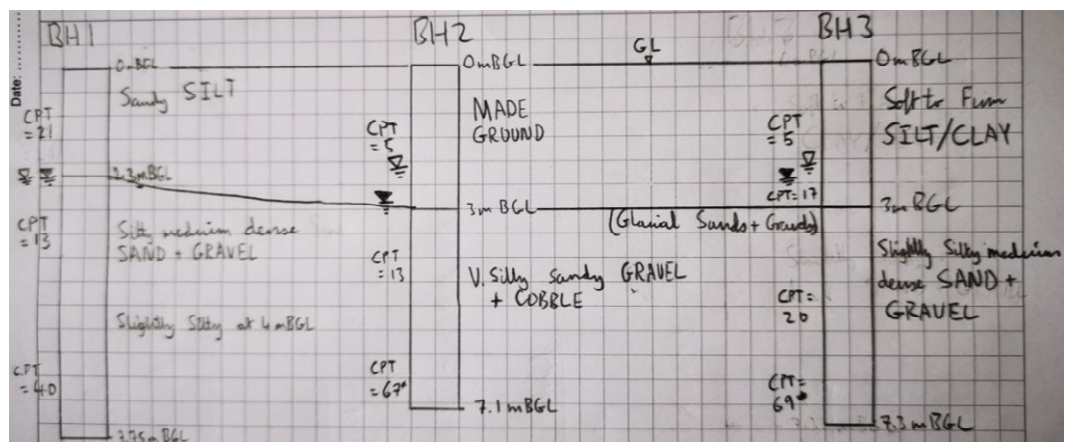 Date:
BH1
BH2
BH3
GL
0mBGL
Sandy SILT
CPT
= 21
2.3mBGL
CPT
= 13
Silty medium dense
SAND + GRAVEL
Slightly Silty at 4mBGL
CPT
= 40
7.75m BGL
0mBGL
MADE
GROUND
CPT
= 5
3m BGL
(Glacial Sands + Gravels)
CPT
= 13
V. Silty Sandy GRAVEL
+ COBBLE
CPT
= 67*
7.1mBGL
0mBGL
Soft to Firm
SILT/CLAY
CPT
= 5
CPT= 17
3m BGL
Slightly Silty medium
dense SAND +
GRAVEL
CPT=
20
CPT=
69*
7.3mBGL